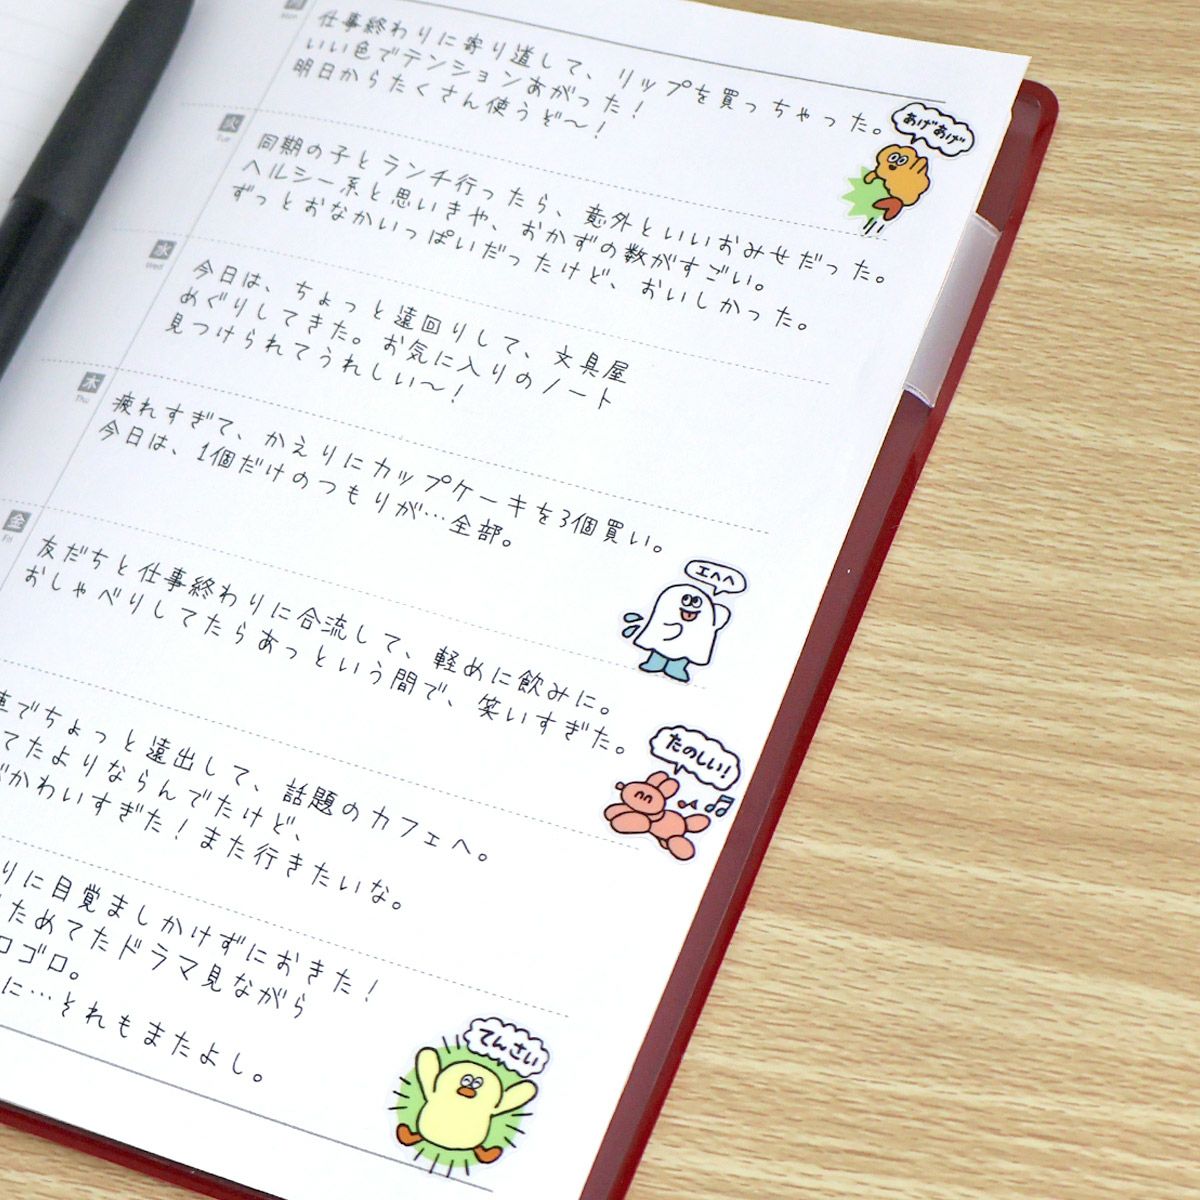 月
Mon
仕事終わりに寄り道して、リップを買っちゃった。
いい色でテンションあがった！
明日からたくさん使うぞ〜！
あげあげ
火
Tue
同期の子とランチ行ったら、意外といいおみせだった。
ヘルシー系と思いきや、おかずの数がすごい。
ずっとおなかいっぱいだったけど、おいしかった。
水
Wed
今日は、ちょっと遠回りして、文具屋
めぐりしてきた。お気に入りのノート
見つけられてうれしい〜！
木
Thu
疲れすぎて、かえりにカップケーキを3個買い。
今日は、1個だけのつもりが…全部。
エヘヘ
金
Fri
友だちと仕事終わりに合流して、軽めに飲みに。
おしゃべりしてたらあっという間で、笑いすぎた。
たのしい！
でちょっと遠出して、話題のカフェへ。
てたよりならんでたけど、
がかわいすぎた！また行きたいな。
りに目覚ましかけずにおきた！
ためてたドラマ見ながら
ロゴロ。
に…それもまたよし。
てんさい